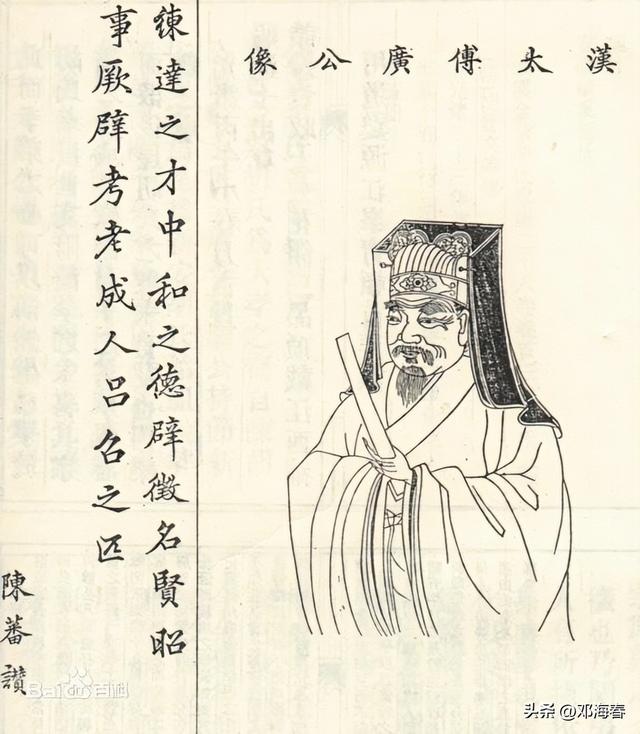 漢太傅廣公像
練達之才中和之徳辟徵名賢昭
事厥辟考老成人呂召之匹
陳蕃讃
Bai百科
头条 @邓海春